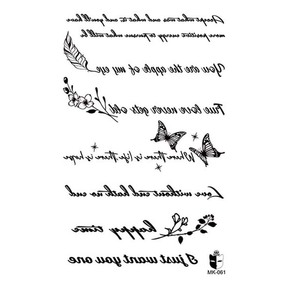 Accept what was and what is and you'll have
more positive energy to pursue what will be
You are the apple of my eye
True love never gets old
Where there is life, there is hope
Love without end hath no end
happy time
I just want you one
MK-061